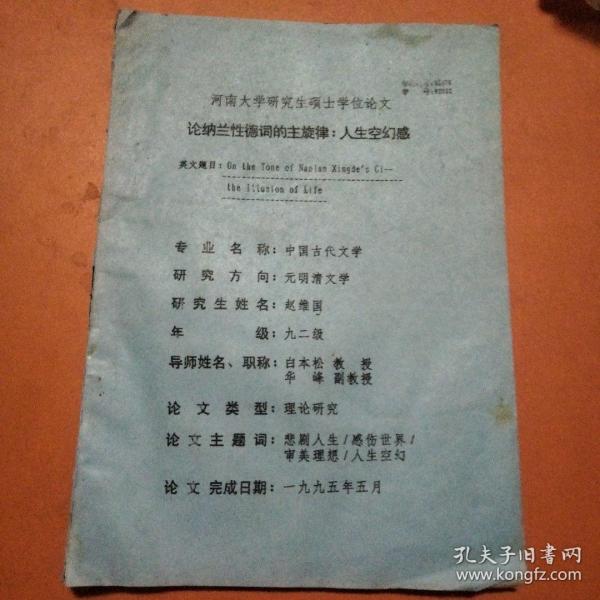 河南大学研究生硕士学位论文
论纳兰性德词的主旋律：人生空幻感
英文题目：On the Tone of Naplan Xingde's Ci—
the Illusion of Life
专业名称：中国古代文学
研究方向：元明清文学
研究生姓名：赵维国
年级：九二级
导师姓名、职称：白本松 教授
华峰 副教授
论文类型：理论研究
论文主题词：悲剧人生/感伤世界/
审美理想/人生空幻
论文完成日期：一九九五年五月
孔夫子旧书网
www.kongfz.com